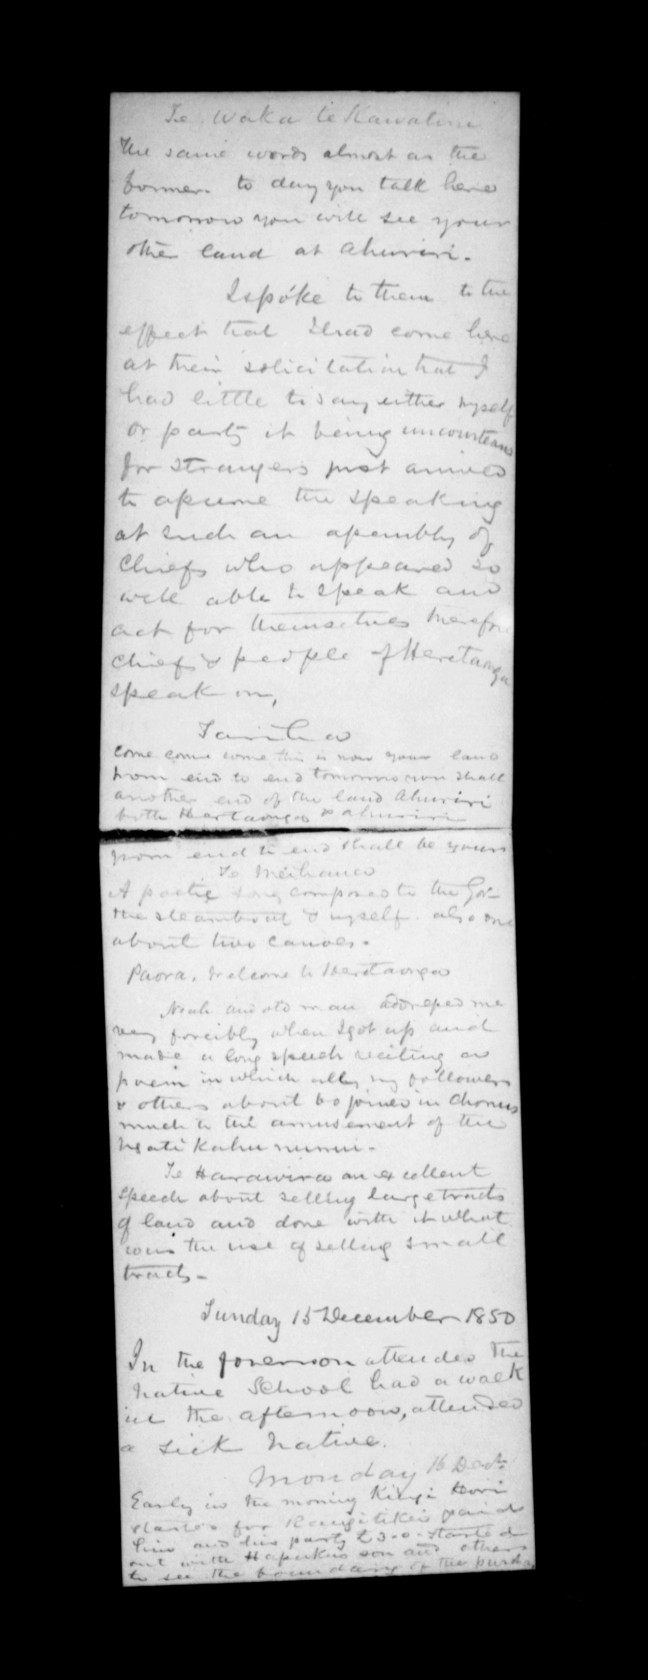 Te Waka te Kawatini
The same words almost as the
former. to day you talk here
tomorrow you will see your
other land at Ahuriri.
I spoke to them to the
effect that I had come here
at their solicitation that I
had little to say either myself
or party it being uncourteous
for strangers just arrived
to assume the speaking
at such an assembly of
chiefs who appeared so
well able to speak and
act for themselves therefore
chiefs & people of Heretaonga
speak on,
Tariha
Come come come this is now your land
from end to end tomorrow you shall
another end of the land Ahuriri
both Heretaonga & Ahuriri
from end to end shall be yours
Te Meihana
A poetic song composed to the Govr
the steamboat & myself. also one
about two canoes.
Paora. Welcome to Heretaonga
Noah and old man addressed me
very forcibly when I got up and
made a long speech reciting a
poem in which all my followers
& others about 60 joined in chorus
much to the amusement of the
Ngatikahununui.
Te Harawira an excellent
speech about selling large tracts
of land and done with it what
was the use of selling small
tracts.
Sunday 15 December 1850
In the forenoon attended the
native School had a walk
in the afternoon, attended
a sick native.
Monday 16 Decr
Early in the morning Kingi Hori
started for Rangitikei paid
him and his party £3.0. started
out with Hapuku's son and others
to see the boundary of the